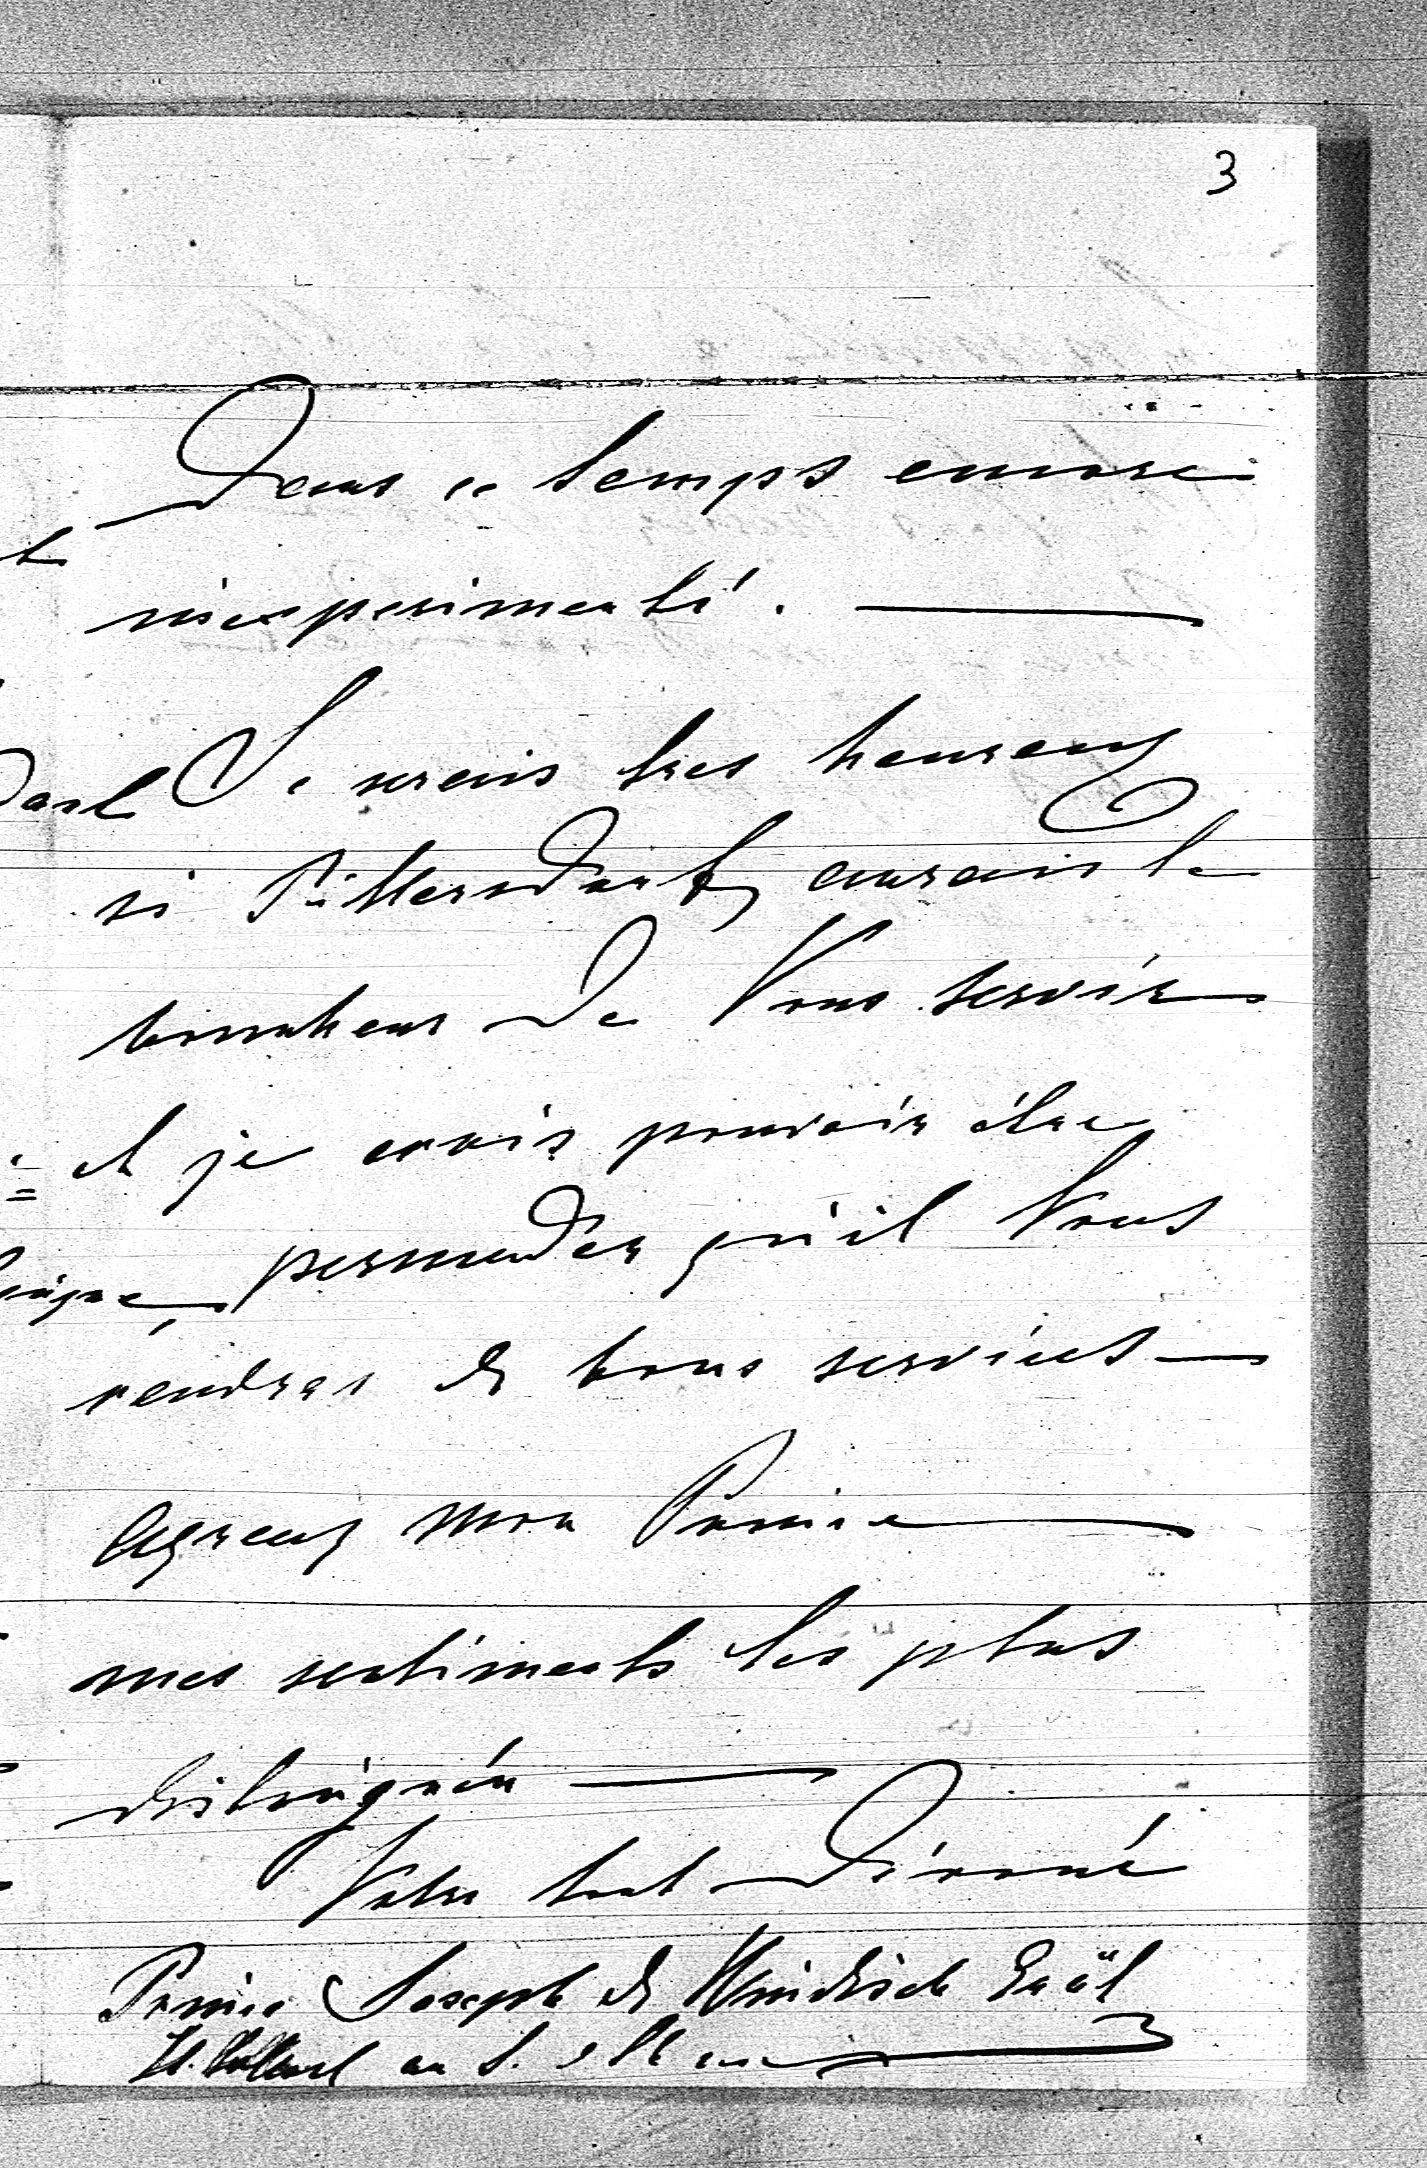 3
Dans ce temps encore
inexperimenté. —
Je serais tres heureux
si Pillersdorf aurais le
bonheur de Vous servir
et je crois pouvoir être
persuader qu'il Vous
rendras de bons services —
Agreez Mon Prince
mes sentiments les plus
distingués —
Votre tout Dévoué
Prince Joseph de Windisch Grätz